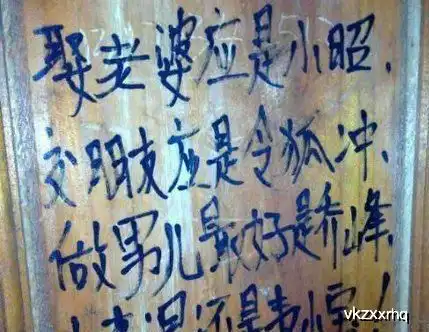 娶老婆应是小昭、
交朋友应是令狐冲、
做男儿最好是乔峰、
还是韦小宝！
vkzxxrhq